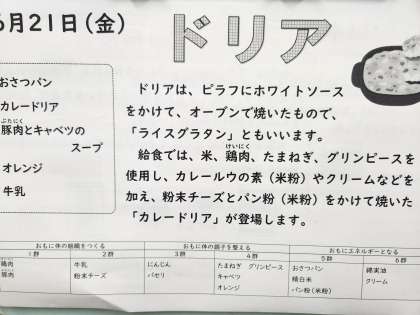 6月21日(金)
ドリア
おさつパン
カレードリア
ぶたにく
豚肉とキャベツの
スープ
オレンジ
牛乳
ドリアは、ピラフにホワイトソース
をかけて、オーブンで焼いたもので、
「ライスグラタン」ともいいます。
けいにく
給食では、米、鶏肉、たまねぎ、グリンピースを
使用し、カレールウの素(米粉)やクリームなどを
加え、粉末チーズとパン粉(米粉)をかけて焼いた
「カレードリア」が登場します。
おもに体の組織をつくる おもに体の調子を整える おもにエネルギーとなる
1群 2群 3群 4群 5群 6群
鶏肉 牛乳 にんじん たまねぎ グリンピース おさつパン 綿実油
豚肉 粉末チーズ パセリ キャベツ 精白米 クリーム
オレンジ パン粉(米粉)